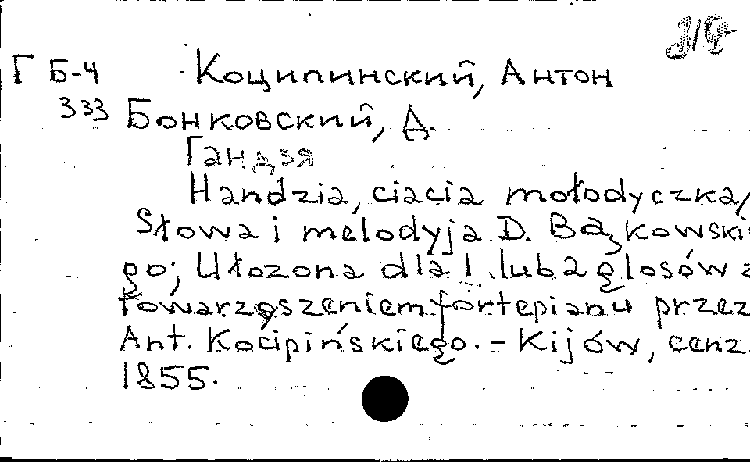 Г Б-4 Коципинский, Антон
333 Бонковский, Д.
Гандзя
Handzia, ciacia mołodyczka/
Słowa i melodyja D. Bąkowskie
go; Ułozona dla 1 lub 2 głosów z
towarzyszeniem fortepianu przez
Ant. Kocipińskiego. - Kijów, cenz.
1855.